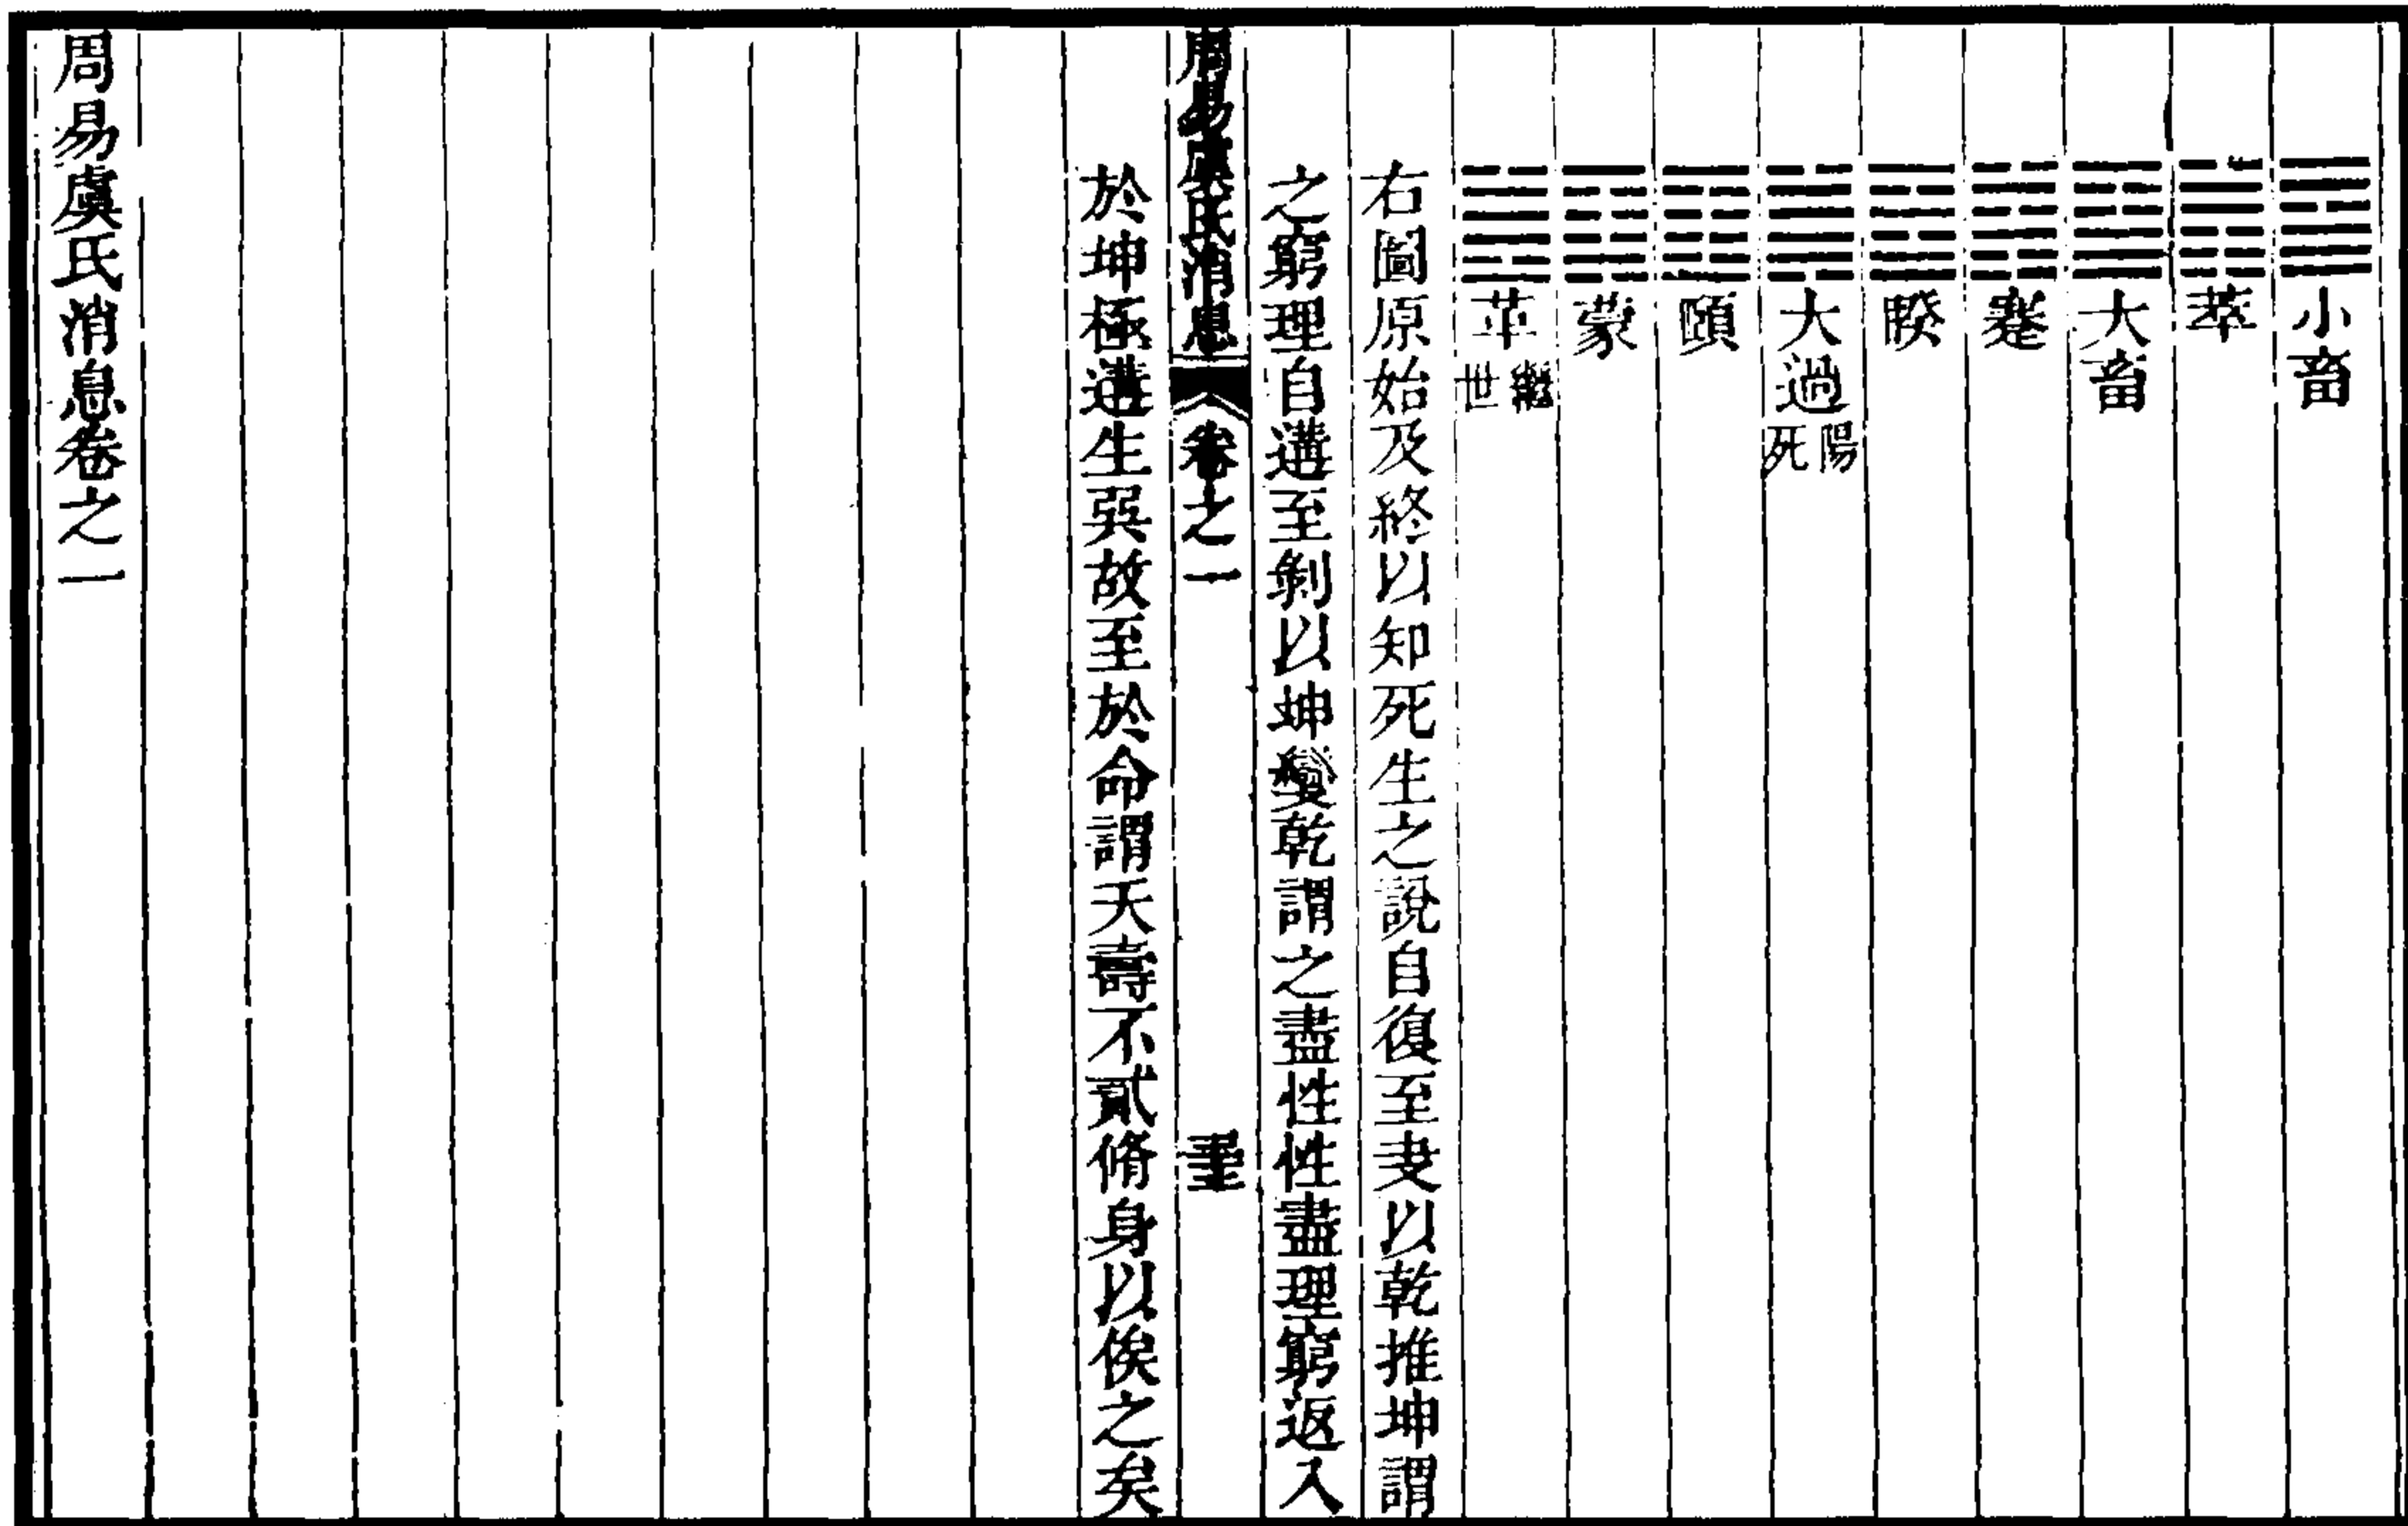 小畜
萃
大畜
蹇
睽
大過陽死
頤
蒙
革繼世
右圖原始及終以知死生之說自復至夬以乾推坤謂
之窮理自遘至剝以坤變乾謂之盡性性盡理窮返入
周易虞氏消息 卷之一
於坤極遘生巽故至於命謂夭壽不貳脩身以俟之矣
周易虞氏消息卷之一